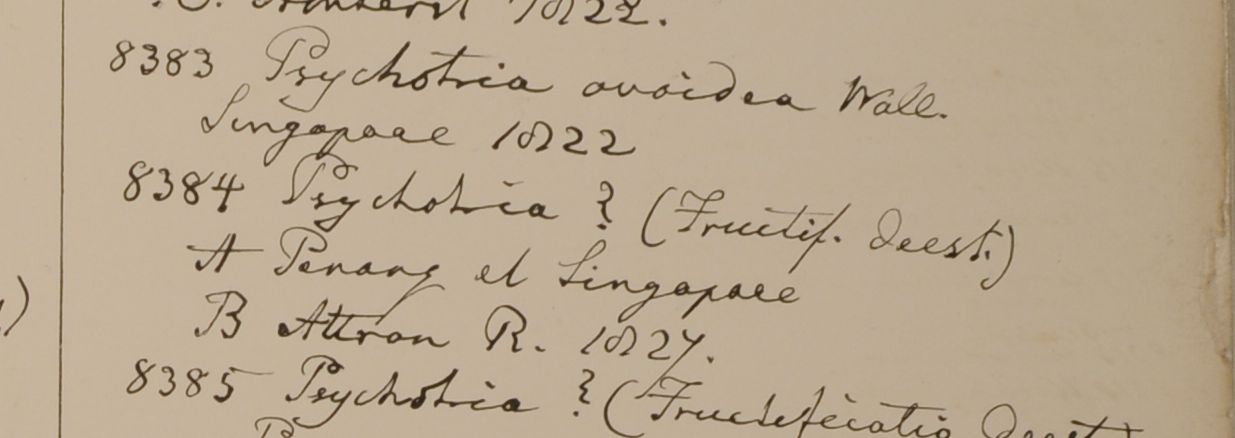 Amherst 1822.
8383 Psychotria ovoidea Wall.
Singapore 1822
8384 Psychotria ? (Fructif. deest.)
A Penang et Singapore
B Attran R. 1827.
)
8385 Psychotria ? (Fructificatio deest)